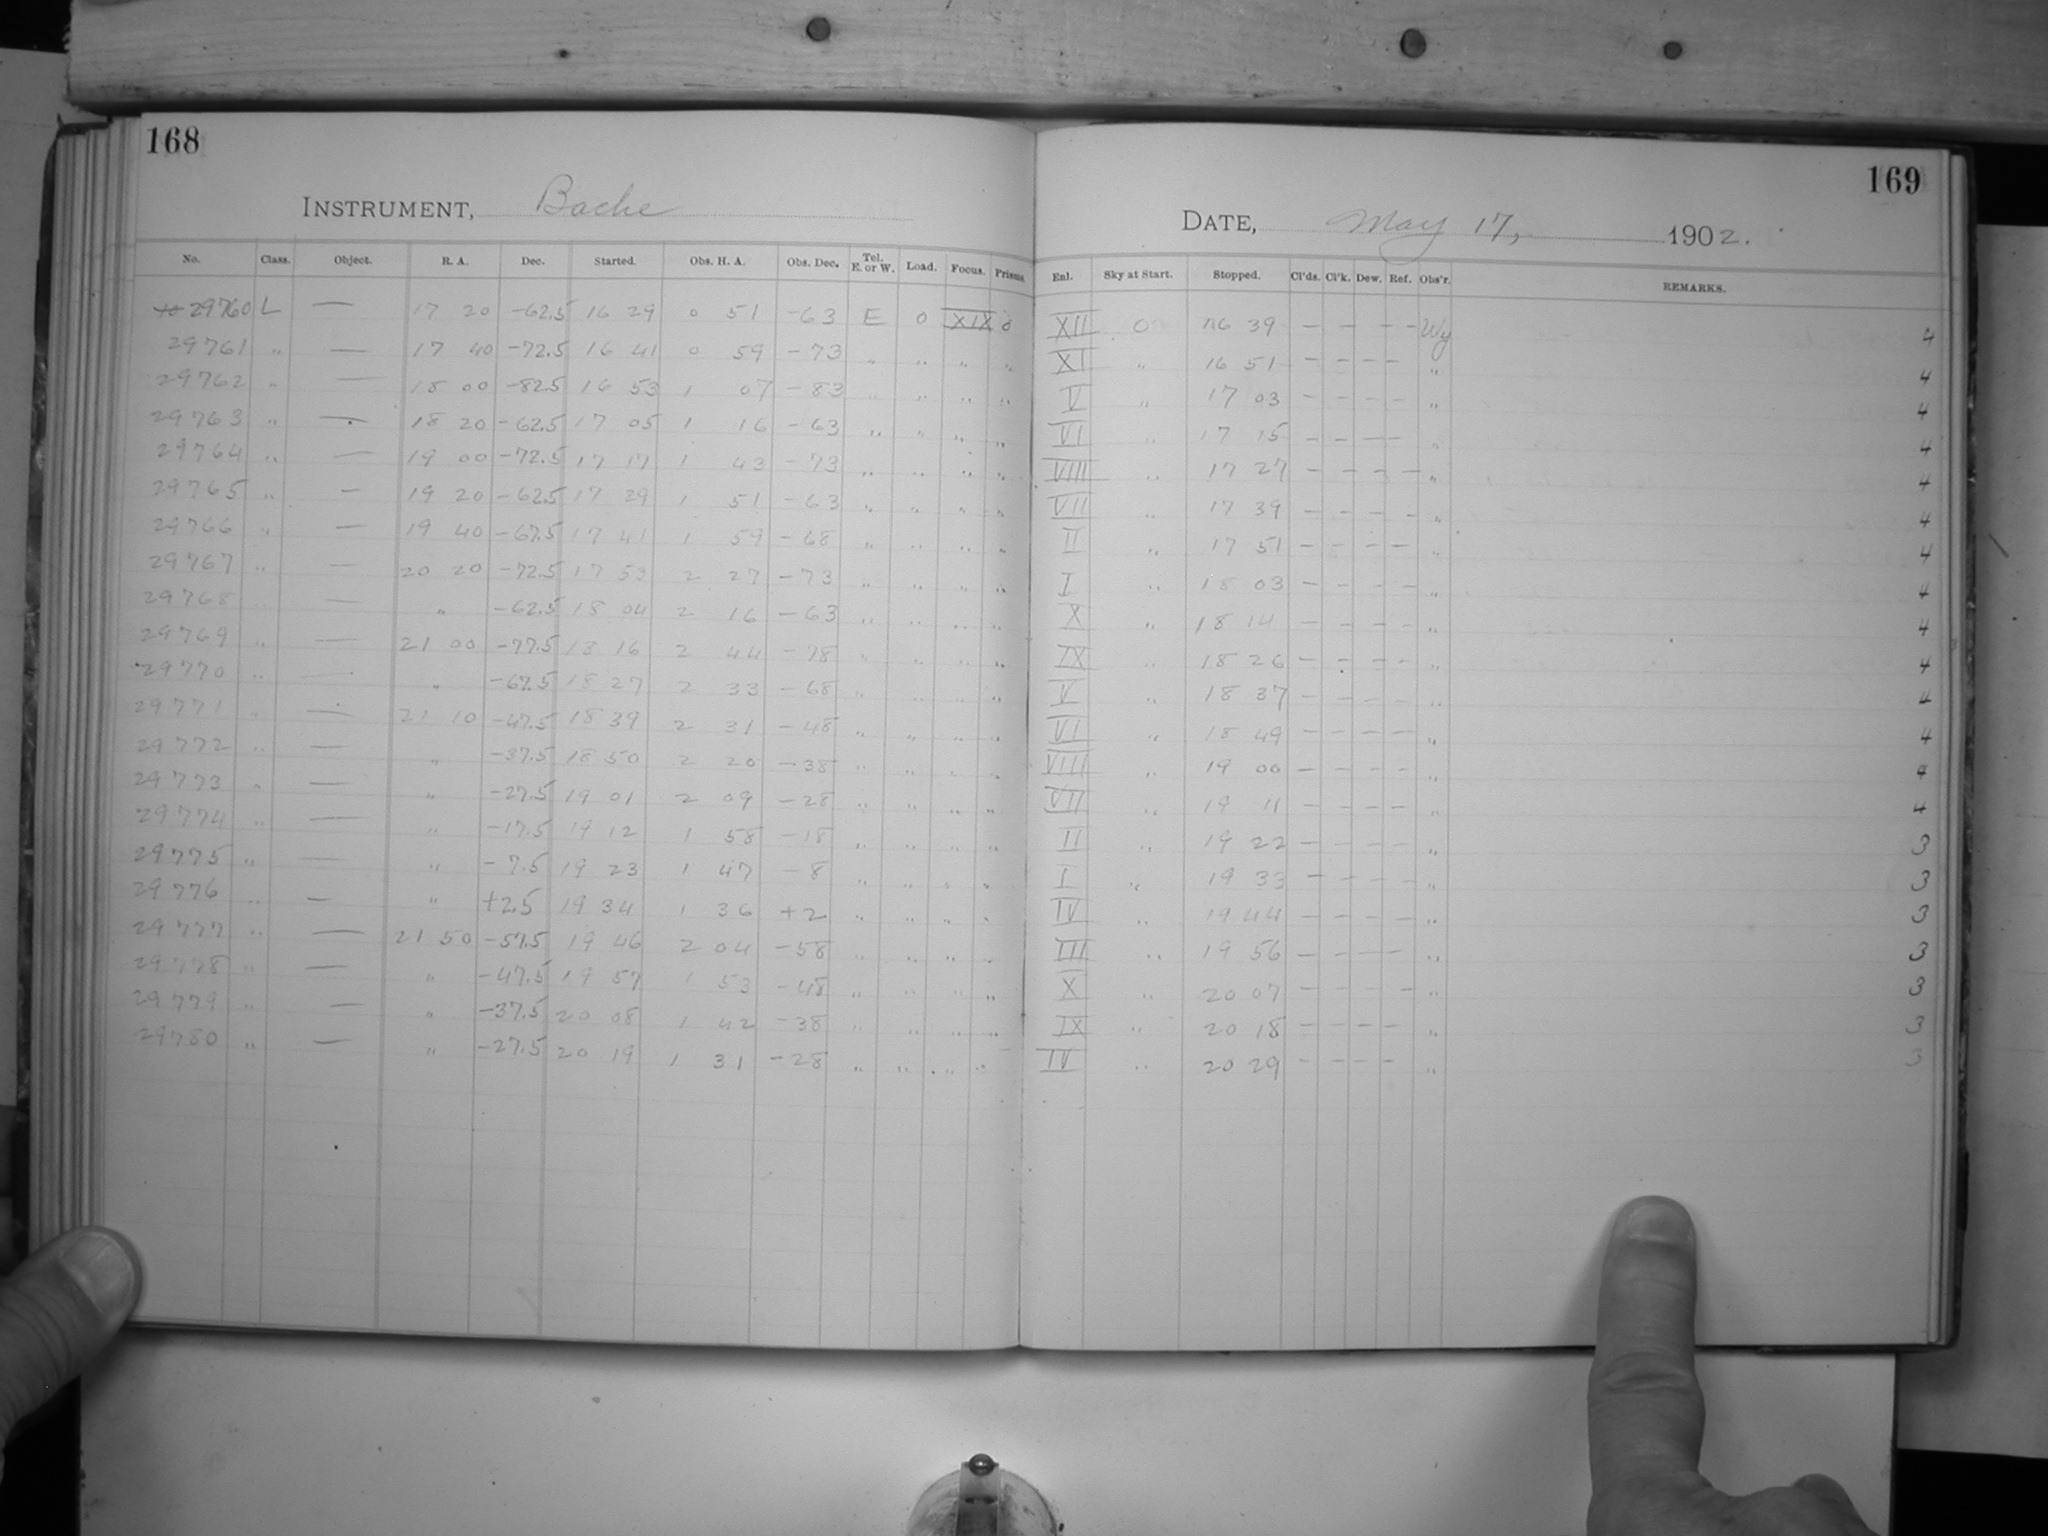 168
169
INSTRUMENT, Bache
DATE, May 17, 1902.
No. Class. Object. R. A. Dec. Started. Obs. H. A. Obs. Dec. Tel. E. or W. Load. Focus. Prisms Enl. Sky at Start. Stopped. Cl'ds. Cl'k. Dew. Ref. Obs'r. REMARKS.
29760 L — 17 20 -62.5 16 29 0 51 -63 E 0 XIX 0 XII 0 16 39 — — — — Wy 4
29761 " — 17 40 -72.5 16 41 0 59 -73 " " " " XI " 16 51 — — — — " 4
29762 " — 18 00 -82.5 16 53 1 07 -83 " " " " V " 17 03 — — — — " 4
29763 " — 18 20 -62.5 17 05 1 16 -63 " " " " VI " 17 15 — — — — " 4
29764 " — 19 00 -72.5 17 17 1 43 -73 " " " " VIII " 17 27 — — — — " 4
29765 " — 19 20 -62.5 17 29 1 51 -63 " " " " VII " 17 39 — — — — " 4
29766 " — 19 40 -67.5 17 41 1 59 -68 " " " " II " 17 51 — — — — " 4
29767 " — 20 20 -72.5 17 53 2 27 -73 " " " " I " 18 03 — — — — " 4
29768 " — " -62.5 18 04 2 16 -63 " " " " X " 18 14 — — — — " 4
29769 " — 21 00 -77.5 18 16 2 44 -78 " " " " IX " 18 26 — — — — " 4
29770 " — " -67.5 18 27 2 33 -68 " " " " V " 18 37 — — — — " 4
29771 " — 21 10 -47.5 18 39 2 31 -48 " " " " VI " 18 49 — — — — " 4
29772 " — " -37.5 18 50 2 20 -38 " " " " VIII " 19 00 — — — — " 4
29773 " — " -27.5 19 01 2 09 -28 " " " " VII " 19 11 — — — — " 4
29774 " — " -17.5 19 12 1 58 -18 " " " " II " 19 22 — — — — " 3
29775 " — " -7.5 19 23 1 47 -8 " " " " I " 19 33 — — — — " 3
29776 " — " +2.5 19 34 1 36 +2 " " " " IV " 19 44 — — — — " 3
29777 " — 21 50 -57.5 19 46 2 04 -58 " " " " III " 19 56 — — — — " 3
29778 " — " -47.5 19 57 1 53 -48 " " " " X " 20 07 — — — — " 3
29779 " — " -37.5 20 08 1 42 -38 " " " " IX " 20 18 — — — — " 3
29780 " — " -27.5 20 19 1 31 -28 " " " " IV " 20 29 — — — — " 3